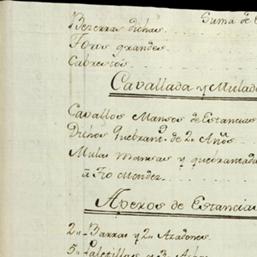 Suma de
Bezerras dichas
Toros grandes
Cabrestos
Cavallada y Mulada
Cavallos Mansos de Estancias
Dichos Quebrant.s de 2. Años
Mulas Mansas y quebrantadas
à Fro Mendez
Aperos de Estancia
2,, Barras y 2,, Azadones
5,, Paletillas y